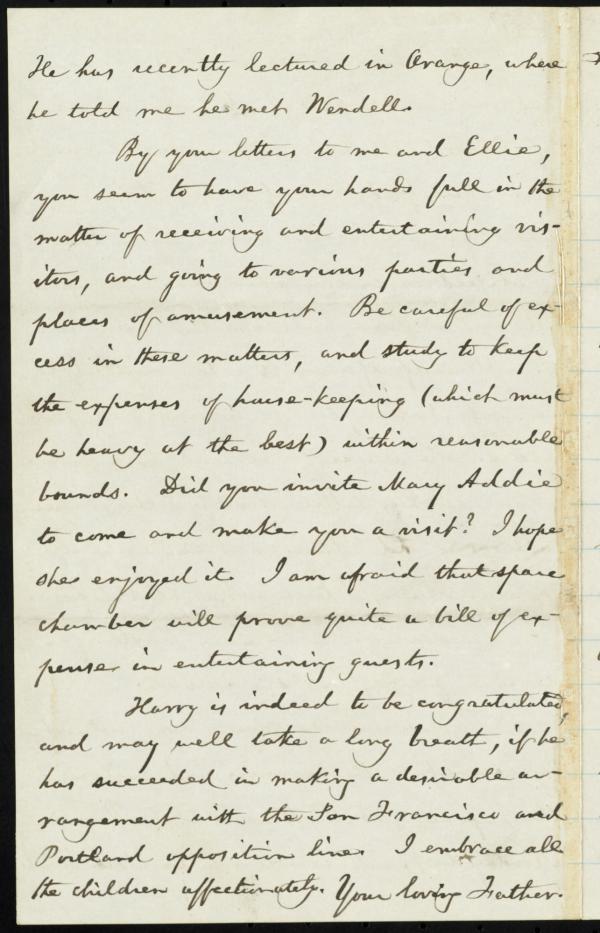 He has recently lectured in Orange, where
he told me he met Wendell.
By your letters to me and Ellie,
you seem to have your hands full in the
matter of receiving and entertaining vis-
itors, and going to various parties and
places of amusement. Be careful of ex-
cess in these matters, and study to keep
the expenses of house-keeping (which must
be heavy at the best) within reasonable
bounds. Did you invite Mary Addie
to come and make you a visit? I hope
she enjoyed it. I am afraid that spare
chamber will prove quite a bill of ex-
pense in entertaining guests.
Harry is indeed to be congratulated,
and may well take a long breath, if he
has succeeded in making a desirable ar-
rangement with the San Francisco and
Portland opposition line. I embrace all
the children affectionately. Your loving Father.